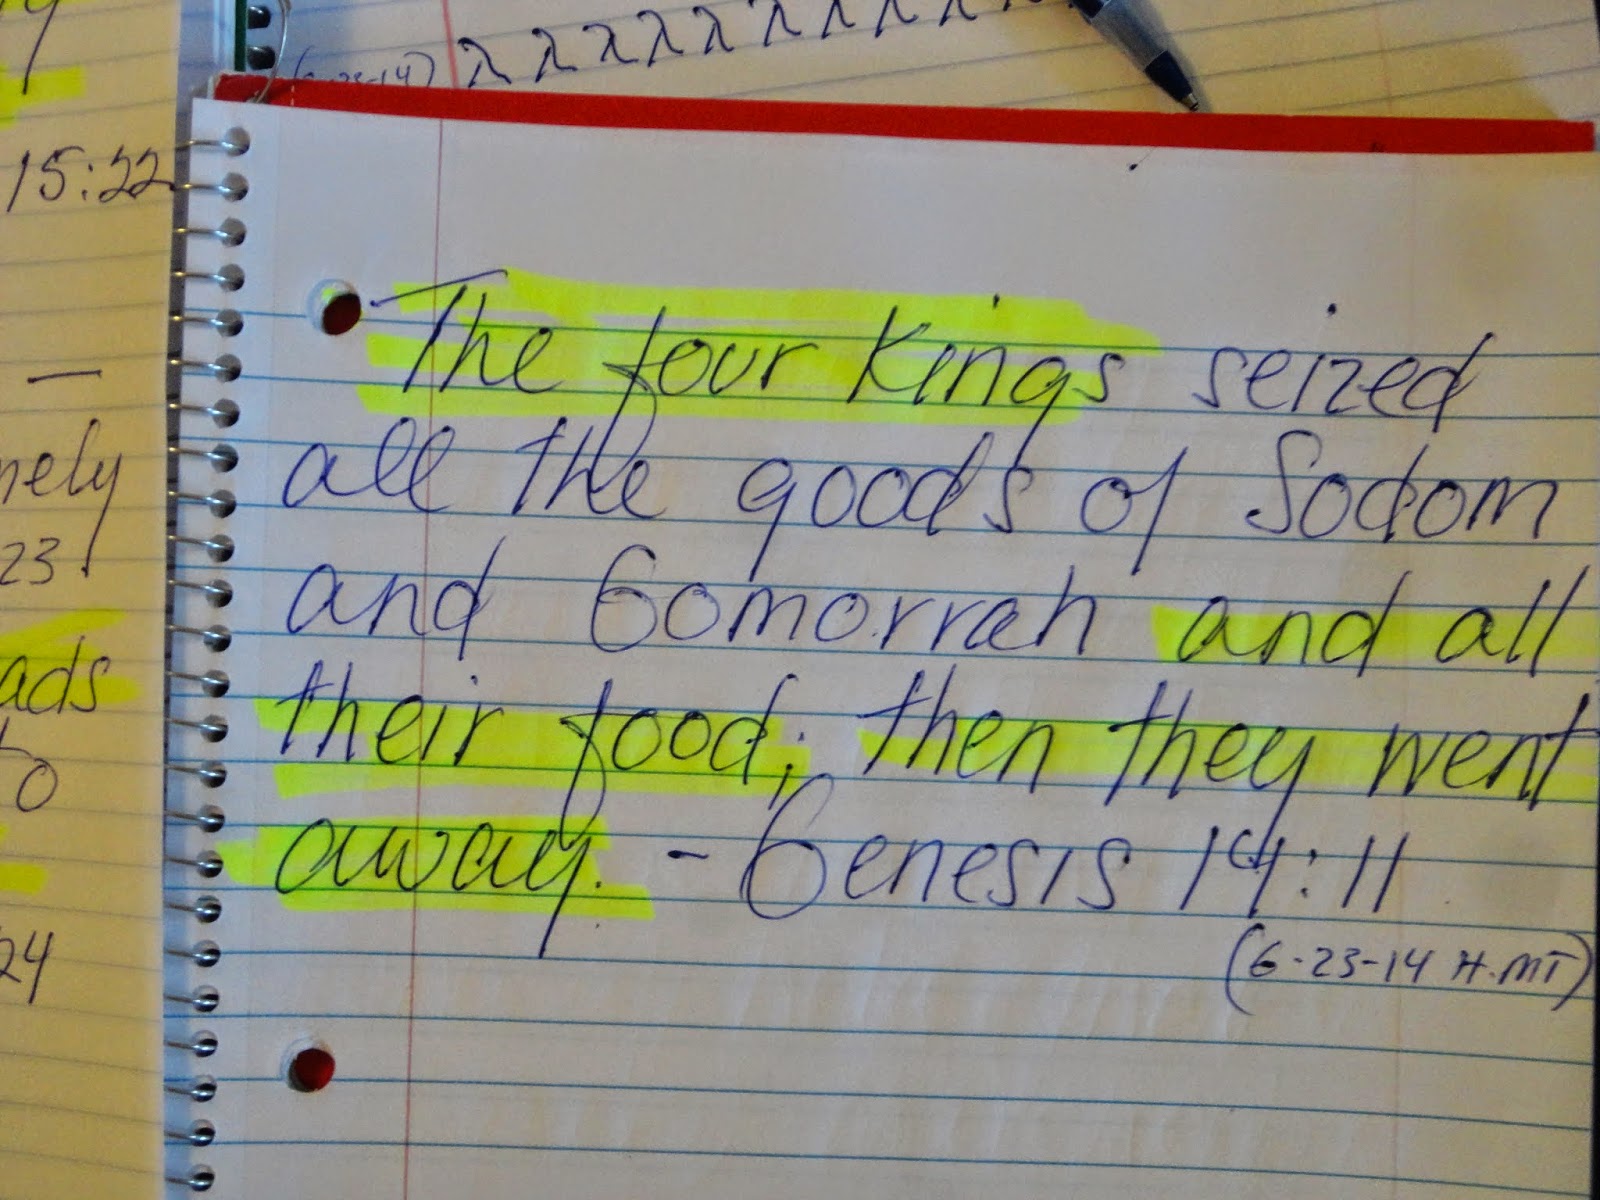 15:22
nely
23
ads
to
24
λ λ λ λ λ λ λ λ λ
The four Kings seized
all the goods of Sodom
and Gomorrah and all
their food; then they went
away. - Genesis 14:11
(6-23-14 H.MT)